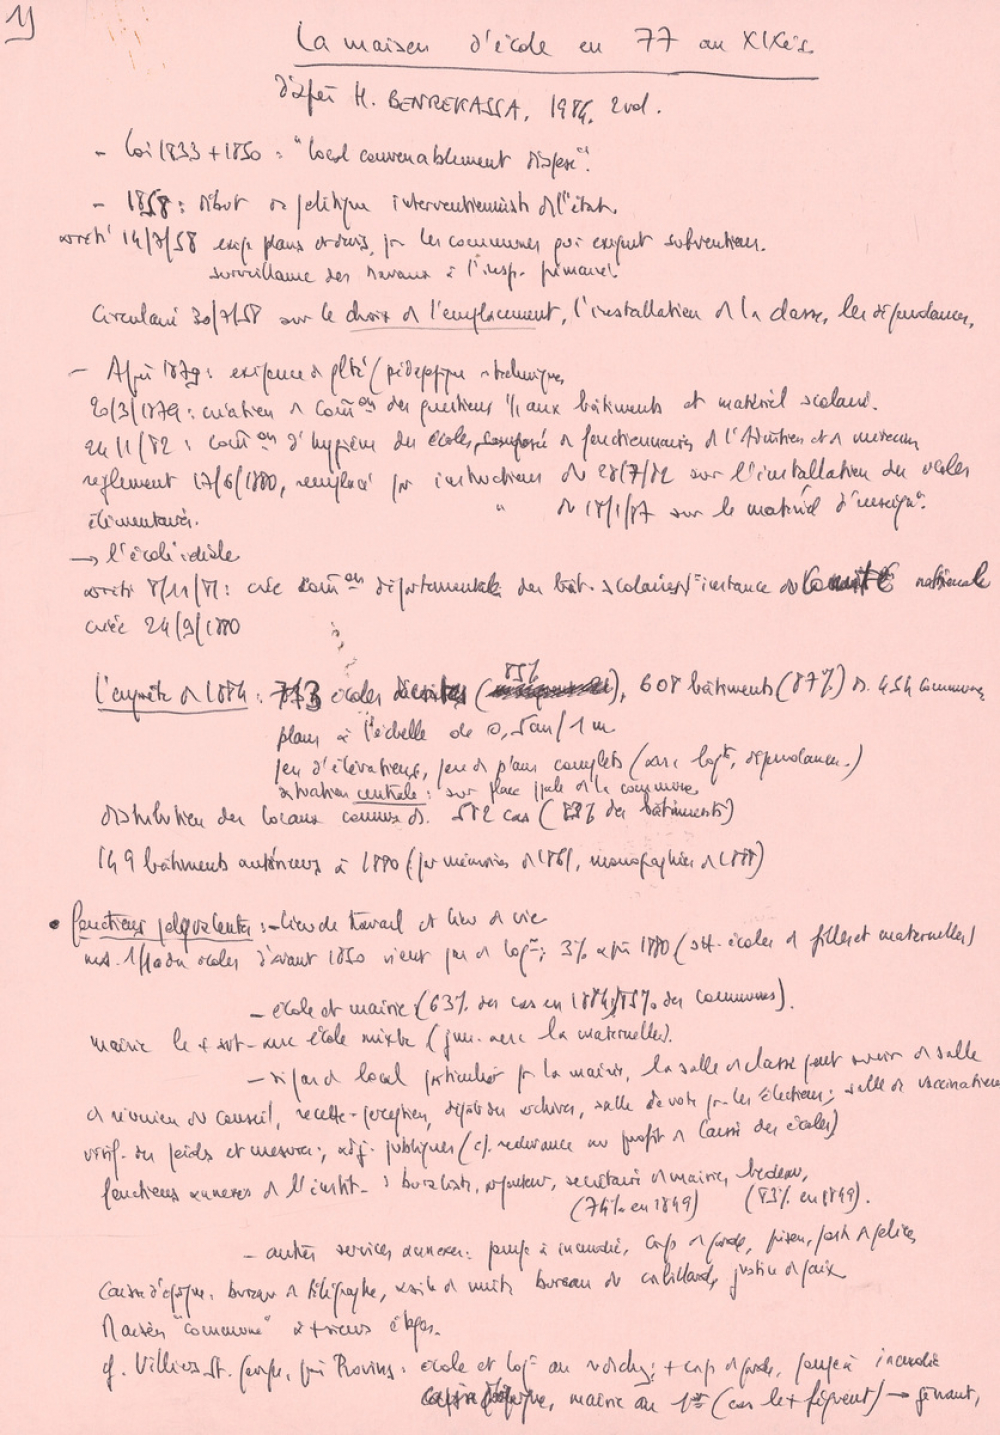 1)
La maison d'école en 77 au XIXès.
d'après H. BENREKASSA, 1984, 2 vol.
- Loi 1833 + 1850 : "local convenablement disposé".
- 1858 : début de politique interventionniste de l'état.
arrêté 14/7/58 exige plans et devis pr les communes qui exigent subventions.
surveillance des travaux à l'insp. primaire.
Circulaire 30/7/58 sur le choix de l'emplacement, l'installation de la classe, les dépendances,
- Après 1879 : exigence de qlté (pédagogique et technique,
20/3/1879 : création de Comon des questions / aux bâtiments et matériel scolaire.
24/1/82 : Comon d'hygiène des écoles, composée de fonctionnaires de l'Admtion et de médecins
règlement 17/6/1880, remplacé par instructions du 28/7/82 sur l'installation des écoles
" du 18/1/87 sur le matériel d'enseignt.
élémentaires.
→ l'école idéale
arrêté 8/11/81 : crée comon départementale des bât. scolaires, instance du Comité nationale
créée 24/9/1880
L'enquête de 1884 : 713 écoles décrites (85%), 608 bâtiments (87%) ds. 454 communes
plans à l'échelle de 0,5cm/1m
jeu d'élévations, jeu de plans complets (avec logt, dépendances.)
situation centrale : sur place ppale de la commune
distribution des locaux connue ds. 582 cas (% des bâtiments)
149 bâtiments antérieurs à 1880 (par mémoires de 1861, monographies de 1888)
• fonctions polyvalentes : - lieu de travail et lieu de vie
1/10 des écoles d'avant 1850 n'ont pas de logt ; 3% après 1880 (st. écoles de filles et maternelles)
- école et mairie (63% des cas en 1884, 85% des communes).
mairie le + svt. avec école mixte (jms. avec la maternelles).
- si pas de local particulier pr la mairie, la salle de classe peut servir de salle
de réunion du conseil, recette-perception, dépôt des archives, salle de vote pr les élections ; salle de vaccination
vérif. des poids et mesures ; adj. publiques (cf. redevance au profit de Caisse des écoles)
fonctions annexes de l'instit. : buraliste, arpenteur, secrétaire de mairie, bedeau,
(74% en 1849) (83% en 1849).
- autres services annexes : pompe à incendie, corps de garde, prison, poste de police,
Caisse d'épargne, bureau de télégraphe, asile de nuit, bureau de, justice de paix
Maison "commune" à +sieurs étages.
cf. Villiers St. Georges, près Provins : école et logt au rdchée ; + corps de garde, pompe à incendie
mairie au 1er (cas le + fréquent) → gênant,